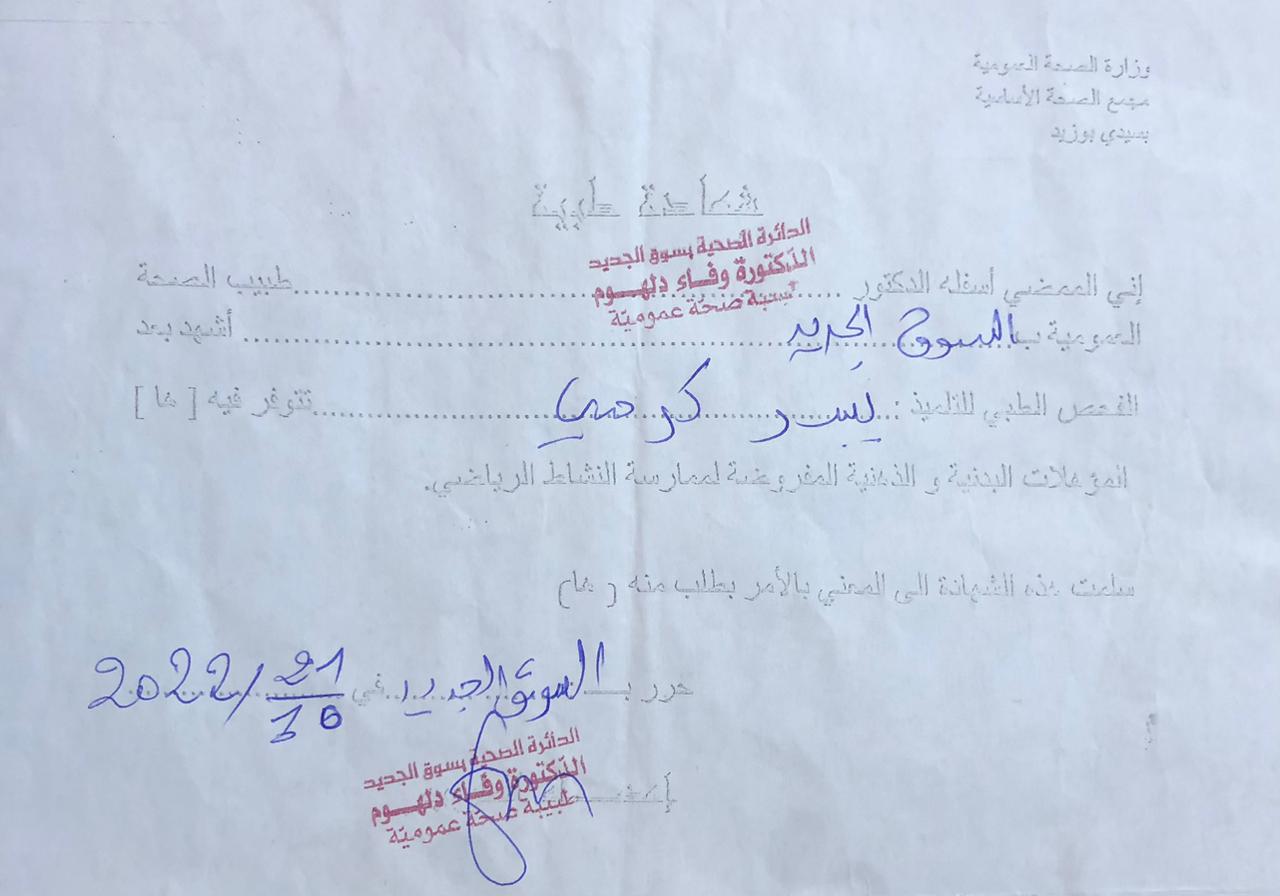 وزارة الصحة العمومية
مجمع الصحة الأساسية
بسيدي بوزيد
شهادة طبية
الدائرة الصحية بسوق الجديد
الدّكتورة وفاء دلهوم
طبيبة صحة عموميّة
إني الممضي أسفله الدكتور ........ طبيب الصحة
العمومية بالسوق الجديد ........ أشهد بعد
الفحص الطبي للتلميذ : يسر كرمي ........ تتوفر فيه [ ها ]
المؤهلات البدنية و الذهنية المفروضة لممارسة النشاط الرياضي.
سلمت هذه الشهادة الى المعني بالأمر بطلب منه ( ها)
حرر بـالسوق الجديد في 21/10/2022
الدائرة الصحية بسوق الجديد
الدّكتورة وفاء دلهوم
طبيبة صحة عموميّة